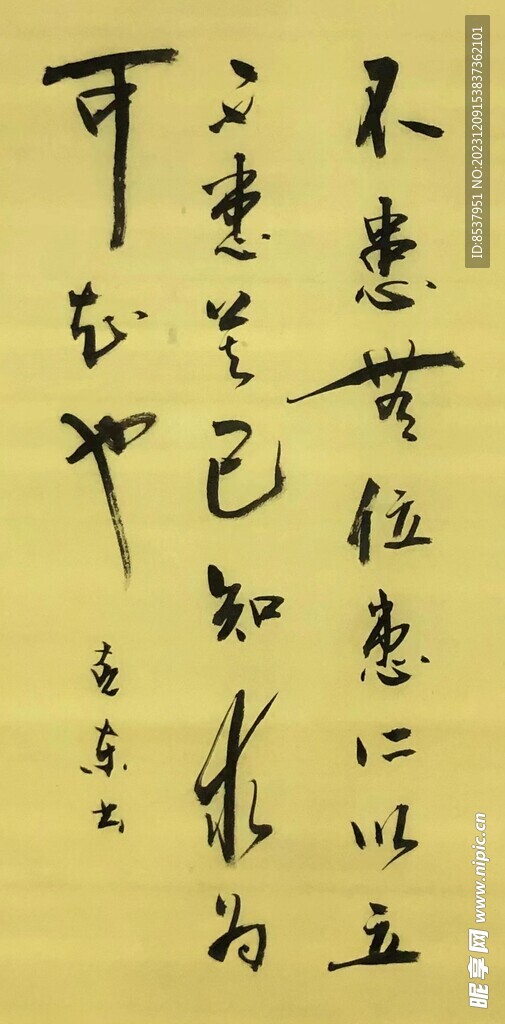 不患無位患所以立
不患莫己知求為
可知也
東書
ID:8537951 NO:20231209153837362101
昵享网 www.nipic.cn